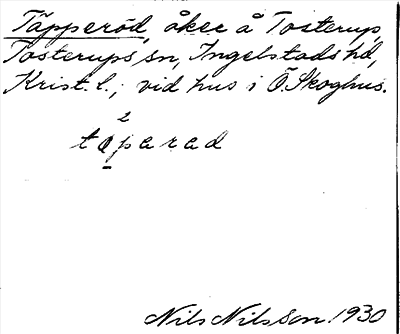 Täpperöd, åker å Tosterup,
Tosterups sn, Ingelstads hd,
Krist. l.; vid hus i Ö. Skoghus.
2
taparad
Nils Nilsson. 1930